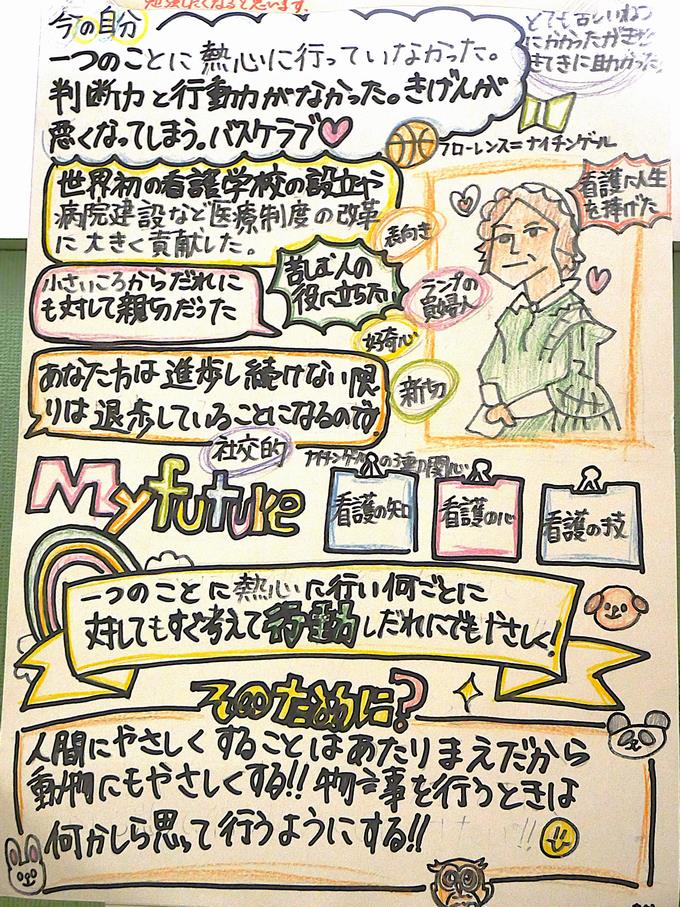 勉強したくなると思います。
今の自分
とても古いねつ
にかかったがきせ
きてきに助かった
一つのことに熱心に行っていなかった。
判断力と行動力がなかった。きげんが
悪くなってしまう。バスケラブ
フローレンス=ナイチンゲール
世界初の看護学校の設立や
病院建設など医療制度の改革
に大きく貢献した。
看護に人生
を捧げた
表向き
小さいころからだれに
も対して親切だった
苦しむ人の
役に立ちたい
ランプの
貴婦人
好奇心
あなた方は進歩し続けない限
りは退歩していることになるのです
新切
社交的
ナイチンゲールの3重の関心
My future
看護の知
看護の心
看護の技
一つのことに熱心に行い何ごとに
対してもすぐ考えて行動しだれにでもやさしく!
そのために?
人間にやさしくすることはあたりまえだから
動物にもやさしくする!!物事を行うときは
何かしら思って行うようにする!!